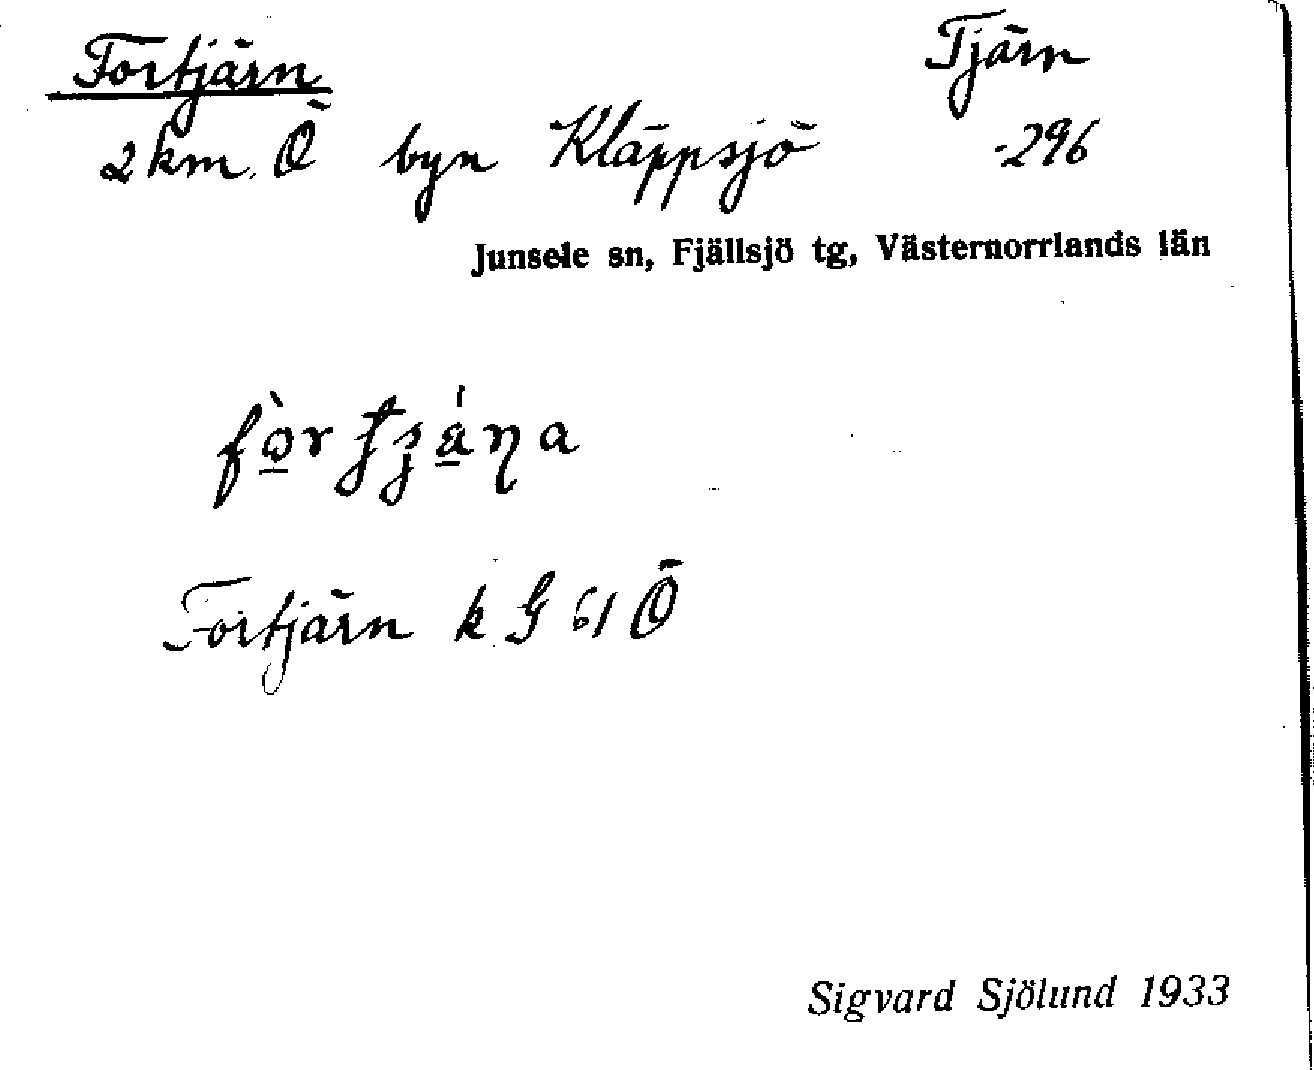 Fortjärn Tjärn
2 km. Ö byn Kläppsjö -296
Junsele sn, Fjällsjö tg, Västernorrlands län
Fortjärn k G 61 Ö
Sigvard Sjölund 1933